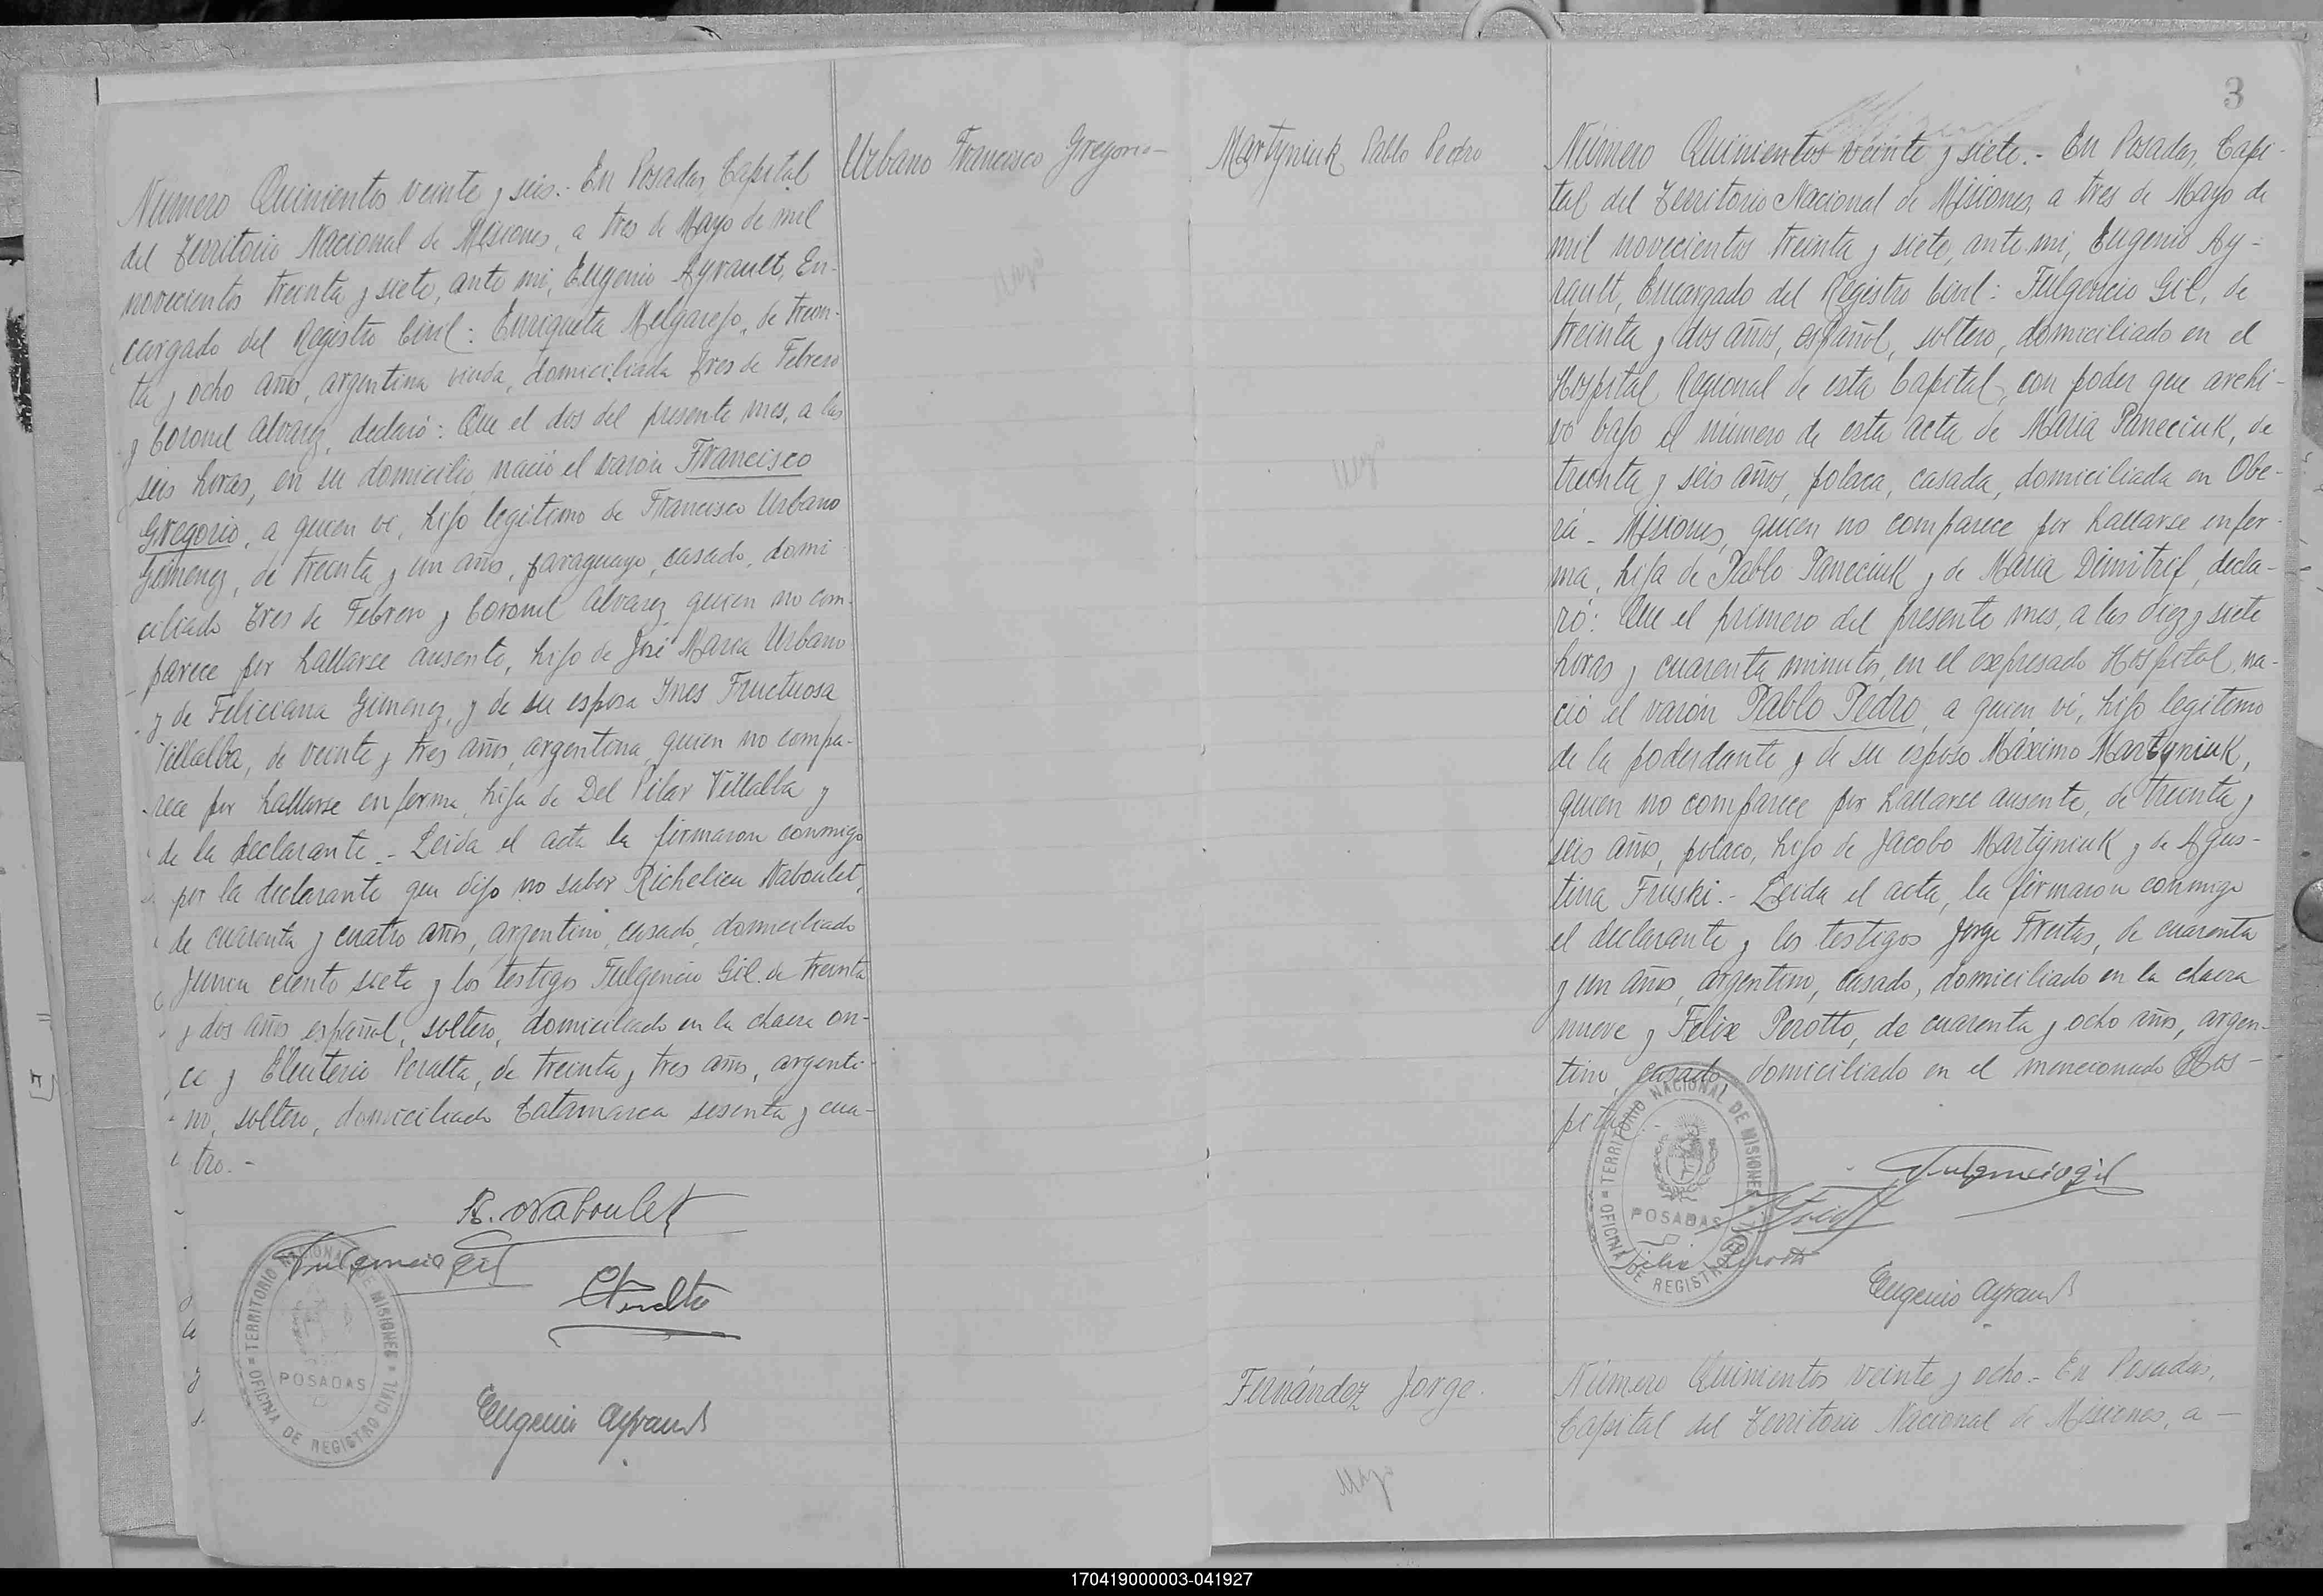 Número Quinientos veinte y seis.- En Posadas, Capital
del Territorio Nacional de Misiones, a tres de Mayo de mil
novecientos treinta y siete, ante mi, Eugenio Ayrault, En-
cargado del Registro Civil: Enriqueta Melgarejo, de trein-
ta y ocho años, argentina viuda, domiciliada Tres de Febrero
y Coronel Alvarez, declaró: Que el dos del presente mes, a las
seis horas, en su domicilio nació el varón Francisco
Gregorio, a quien vi, hijo legítimo de Francisco Urbano
Gimenez, de treinta y un años, paraguayo, casado, domi
ciliado Tres de Febrero y Coronel Alvarez, quien no com-
parece por hallarse ausente, hijo de José Maria Urbano
y de Feliciana Gimenez, y de su esposa Ines Fructuosa
Villalba, de veinte y tres años, argentina, quien no compa-
rece por hallarse enferma, hija de Del Pilar Villalba y
de la declarante.- Leida el acta la firmaron conmigo
por la declarante que dijo no saber Richelieu Naboulet,
de cuarenta y cuatro años, argentino, casado, domiciliado
Junin ciento siete y los testigos Fulgencio Gil de treinta
y dos años español, soltero, domiciliado en la chacra on-
ce y Eleuterio Peralta, de treinta y tres años, argenti-
no, soltero, domiciliado Catamarca sesenta y cua-
tro.-
R. Naboulet
Fulgencio Gil
EPeralta
TERRITORIO NACIONAL DE MISIONES
POSADAS
OFICINA DE REGISTRO CIVIL
Eugenio Ayrault
Urbano Francisco Gregorio-
Mayo
3
Martyniuk Pablo Pedro
Mayo
Número Quinientos veinte y siete.- En Posadas, Capi-
tal del Territorio Nacional de Misiones, a tres de Mayo de
mil novecientos treinta y siete, ante mi, Eugenio Ay-
rault, Encargado del Registro Civil: Fulgencio Gil, de
treinta y dos años, español, soltero, domiciliado en el
Hospital Regional de esta Capital, con poder que archi-
vo bajo el número de esta acta de Maria Paneciuk, de
treinta y seis años, polaca, casada, domiciliada en Obe-
rá - Misiones, quien no comparece por hallarse enfer-
ma, hija de Pablo Paneciuk y de Maria Dimitrif, decla-
ró: Que el primero del presente mes, a las diez y siete
horas y cuarenta minutos, en el expresado Hospital, na-
ció el varón Pablo Pedro, a quien vi, hijo legítimo
de la poderdante y de su esposo Máximo Martyniuk,
quien no comparece por hallarse ausente, de treinta y
seis años, polaco, hijo de Jacobo Martyniuk y de Agus-
tina Fruski.- Leida el acta, la firmaron conmigo
el declarante y los testigos Jorge Freitas, de cuarenta
y un años, argentino, casado, domiciliado en la chacra
nueve y Felix Perotto, de cuarenta y ocho años, argen-
tino, casado, domiciliado en el mencionado Hos-
pital.-
TERRITORIO NACIONAL DE MISIONES
POSADAS
OFICINA DE REGISTRO CIVIL
Fulgencio Gil
Felix Perotto
Eugenio Ayrault
Fernández Jorge.
Mayo
Número Quinientos veinte y ocho.- En Posadas,
Capital del Territorio Nacional de Misiones, a -
170419000003-041927